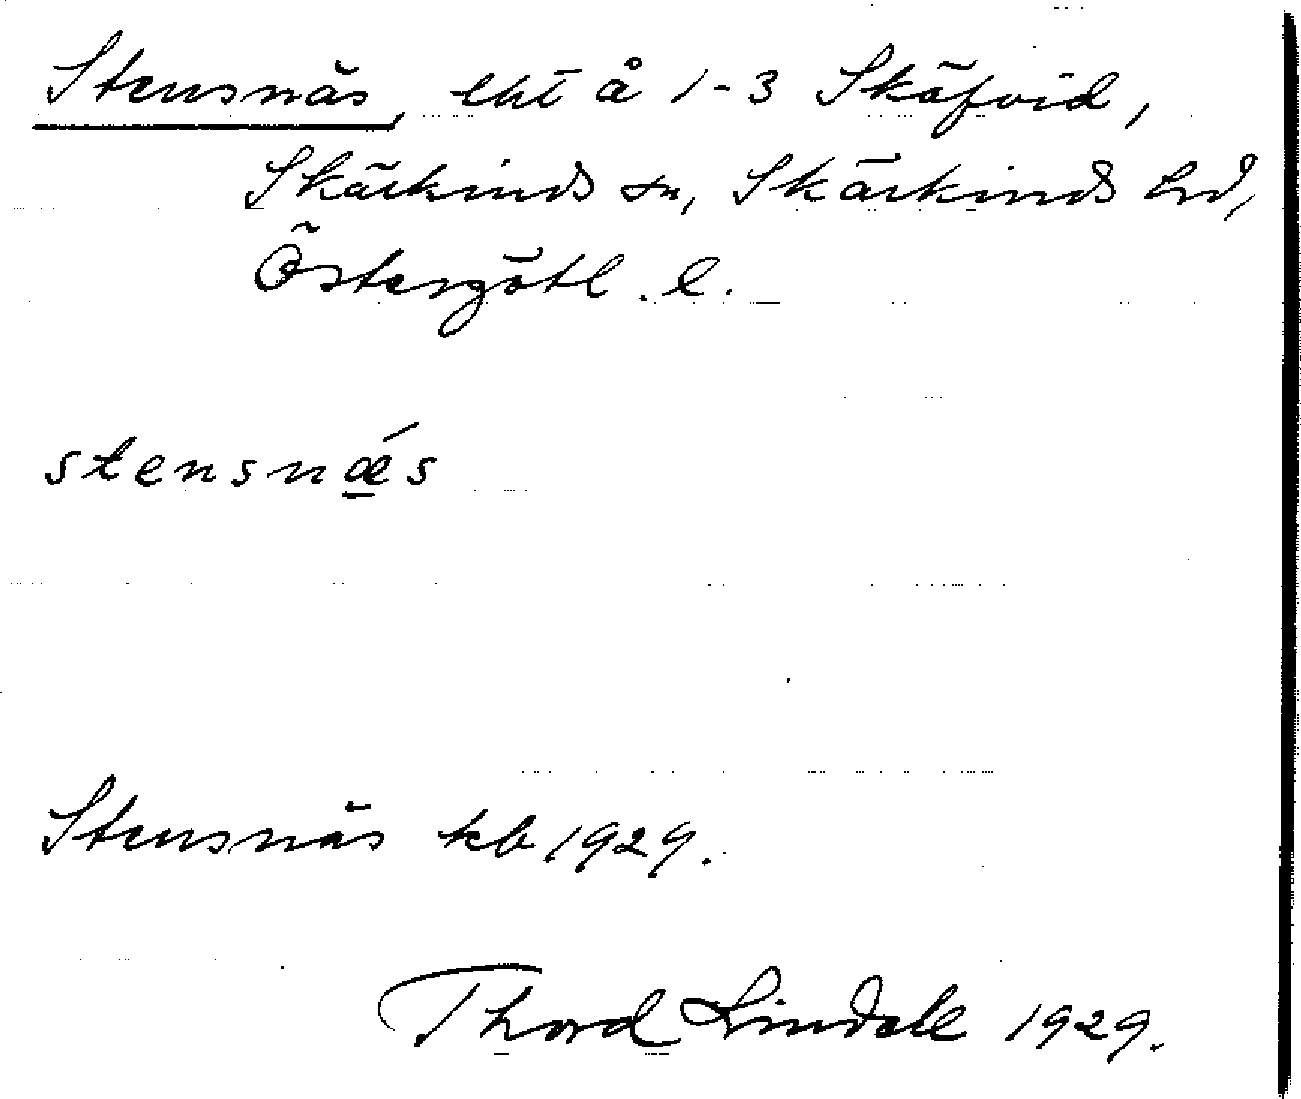 Stensnäs, lht å 1-3 Skäfvid,
Skärkinds sn, Skärkinds hd,
Östergötl. l.
stensnǽs
Stensnäs kb 1929.
Thord Lindell 1929.